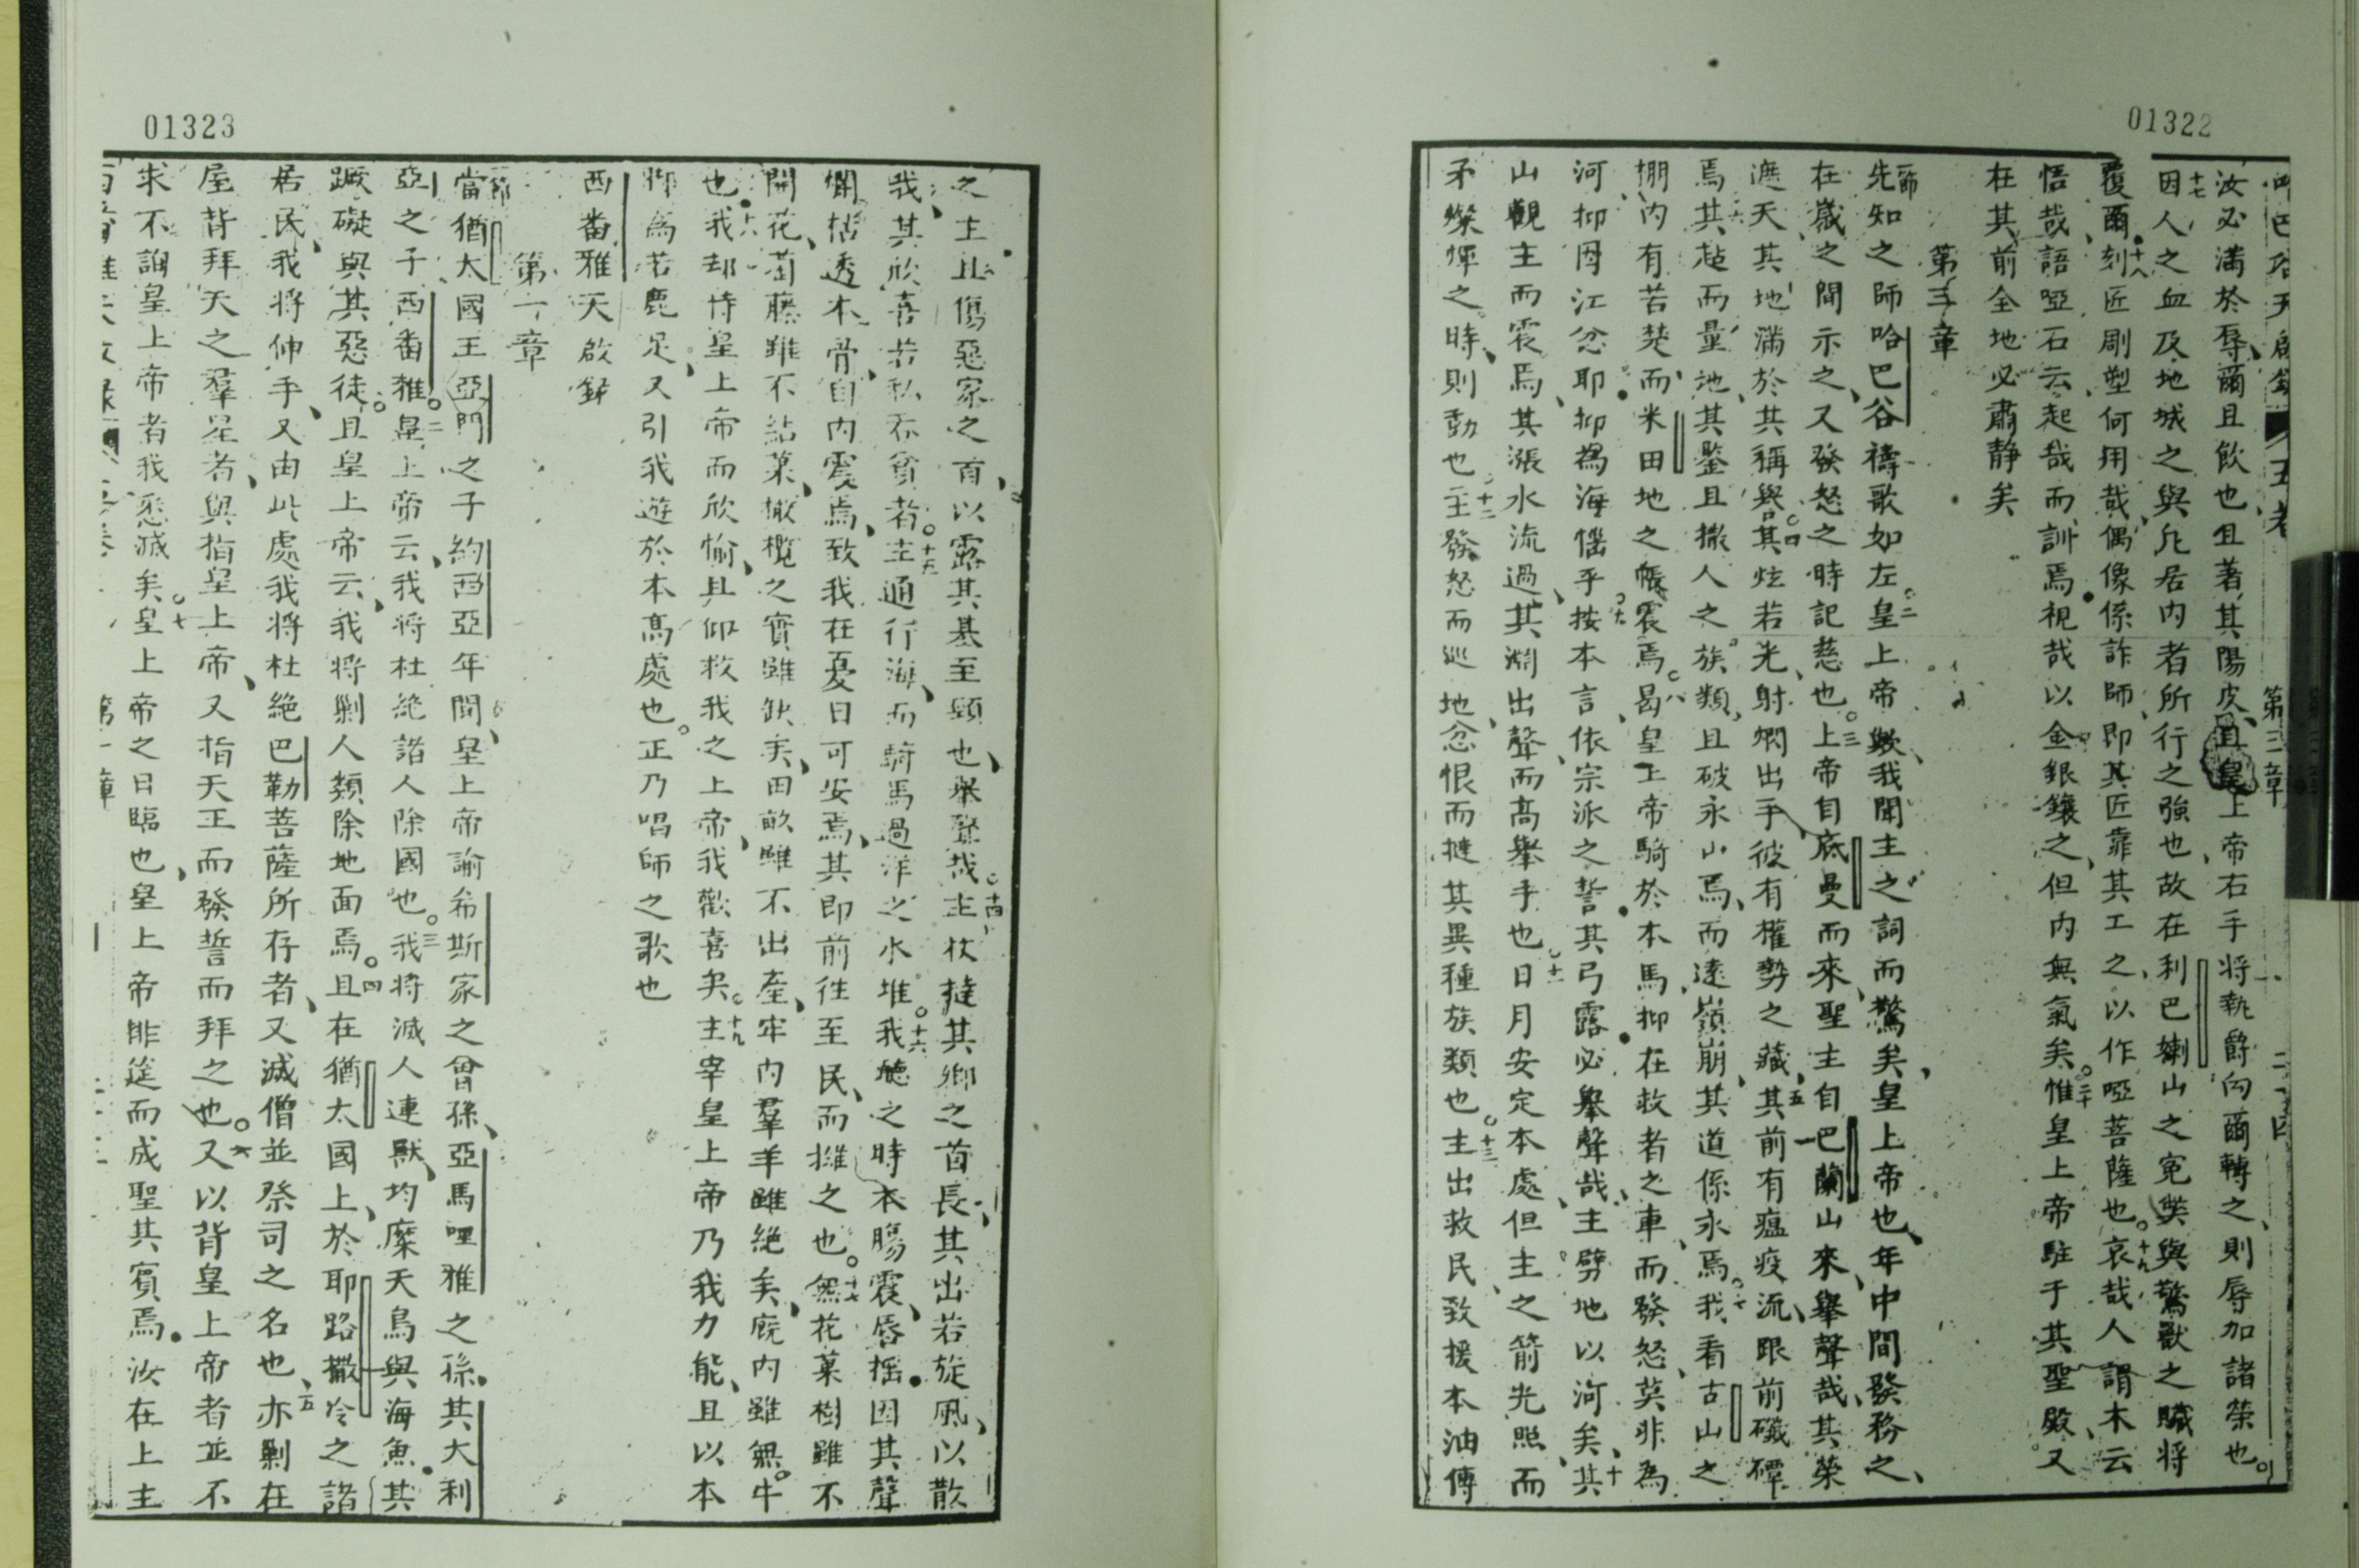 01322
第三章
汝必滿於辱、爾且飲也且著其陽皮、且皇上帝右手將執爵向爾轉之、則辱加諸榮也。
十七因人之血及地城之與凡居內者所行之強也、故在利巴喇山之冤與驚獸之贓將
覆爾。十八刻匠剛塑何用哉、偶像係詐師、即其匠靠其工之、以作啞菩薩也。十九哀哉人謂木云
悟哉、語啞石云起哉而訓焉、視哉以金銀鑲之、但內無氣矣。二十惟皇上帝駐于其聖殿、又
在其前全地必肅靜矣
第三章
一節先知之師哈巴谷禱歌如左。二皇上帝歟、我聞主之詞而驚矣、皇上帝也、年中間發務之、
在歲之間示之、又發怒之時記慈也。三上帝自底曼而來、聖主自巴蘭山來、舉聲哉、其榮
遮天其地滿於其稱與。四其炫若光、射爓出手、彼有權勢之藏、五其前有瘟疫流、跟前礮磹
焉。六其趌而量地、其鑒且撒人之族類、且破永山焉、而遠嶺崩、其道係永焉。七我看古山之
棚內有苦楚、而米田地之帳震焉。八曷皇上帝騎於本馬、抑在救者之車、而發怒、莫非為
河、抑因江忿耶、抑為海惱乎。九按本言、依宗派之誓、其弓露必舉聲哉、主劈地以河矣、十其
山觀主而震焉、其漲水流過、其淵出聲、而高舉手也。十一日月安定本處、但主之箭光照、而
矛燦輝之時、則動也。十二主發怒而巡地、忿恨而撻其異種族類也。十三主出救民、致援本油傅
01323
之主、且傷惡家之首、以露其基至頸也、舉聲哉。十四主杖撻其鄉之酋長、其出若旋風、以散
我、其欣喜若私吞貧者。十五主通行海、而騎馬過洋之水堆。十六我聽之時、本腸震、唇搖、因其聲
爛枯透本骨、自內震焉、致我在憂日可安焉、其即前往至民、而攤之也。十七無花菓樹雖不
開花、萄藤雖不結菓、橄欖之實雖缺矣、田畝雖不出產、牢內羣羊雖絕矣、廐內雖無牛
也、十八我却恃皇上帝而欣愉、且仰救我之上帝、我歡喜矣。十九主宰皇上帝乃我力能、且以本
腳為若鹿足、又引我遊於本高處也。正乃唱師之歌也
西番雅天啟錄
第一章
一節當猶大國王亞門之子約西亞年間、皇上帝諭希斯家之曾孫、亞馬哩雅之孫、其大利
亞之子西番雅。二皇上帝云、我將杜絕諸人除國也。三我將滅人連獸、均糜天鳥與海魚、其
蹶礙與其惡徒、且皇上帝云、我將剿人類除地面焉。四且在猶大國上、於耶路撒冷之諸
居民、我將伸手、又由此處我將杜絕巴勒菩薩所存者、又滅僧並祭司之名也、五亦剿在
屋背拜天之羣星者、與指皇上帝、又指天王而發誓而拜之也。六又以背皇上帝者並不
求不詢皇上帝者我悉滅矣。七皇上帝之日臨也、皇上帝排筵而成聖其賓焉、汝在上主
第一章